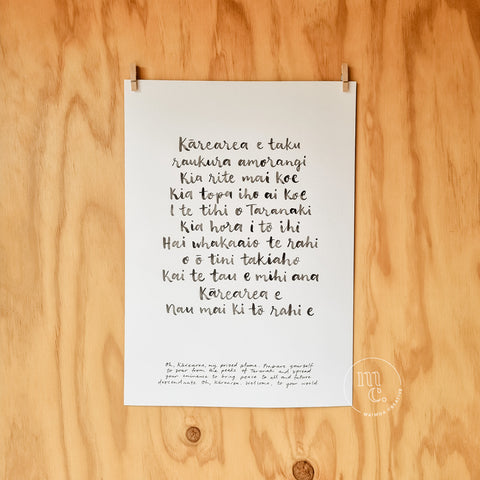 Kārearea e taku
raukura amorangi
Kia rite mai koe
Kia topa iho ai koe
I te tihi o Taranaki
Kia hora i tō ihi
Hai whakaaio te rahi
o ō tini takiaho
Kai te tau e mihi ana
Kārearea e
Nau mai ki tō rahi e
Oh, Kārearea, my prized plume. Prepare yourself
to soar from the peaks of Taranaki and spread
your eminence to bring peace to all and future
descendants. Oh, Kārearea. Welcome, to your world
mc.